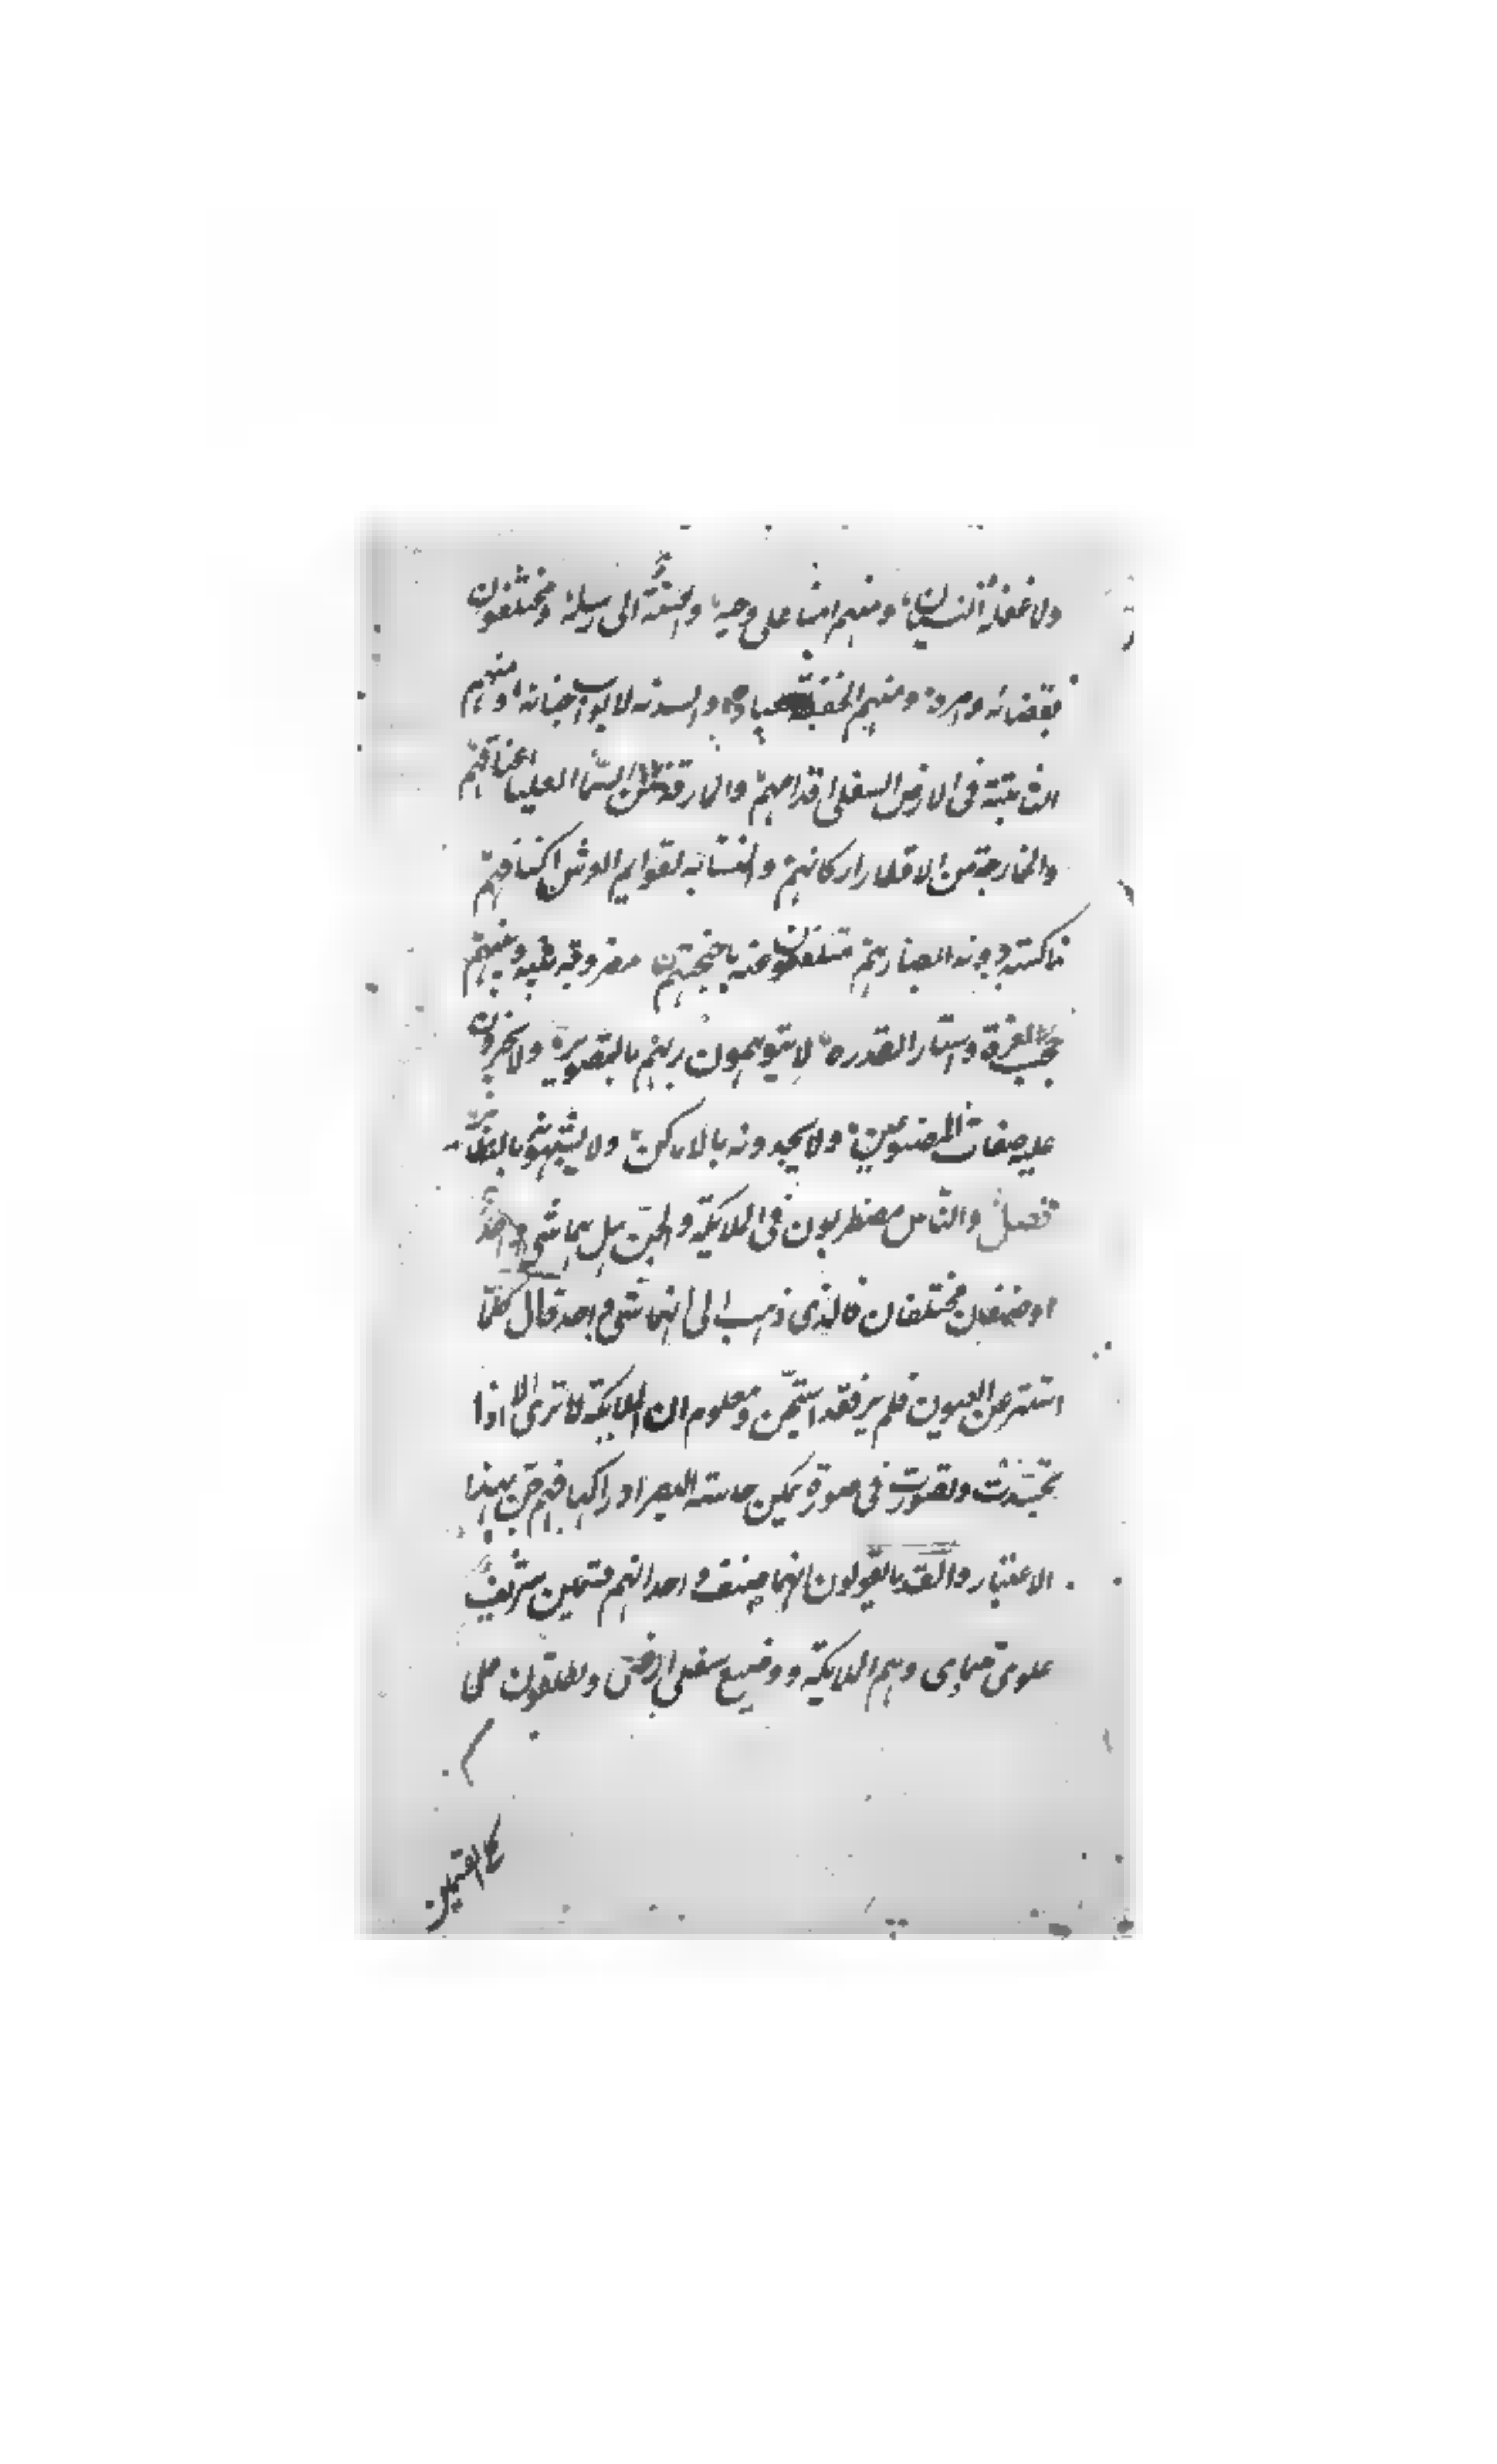 ولا غفلة النسيان ومنهم امنا على وحيه والسنة الى رسله ومختلفون
بقضائه وامره ومنهم الحفظة لعباده والسدنة لابواب جنانه ومنهم
الثابتة في الارض السفلى اقدامهم والمارقة من السما العليا اعناقهم
والخارجة من الاقطار اركانهم والمناسبة لقوايم العرش اكتافهم
ناكسة دونه ابصارهم متلفعون تحته باجنحتهم مضروبة بينهم وبين من دونهم
حجب العزة واستار القدرة لا يتوهمون ربهم بالتصوير ولا يجرون
عليه صفات المصنوعين ولا يحدونه بالاماكن ولا يشيرون اليه بالنظاير
فصل والناس مضطربون في الملايكة والجن هل هما شي واحد
او صنفان مختلفان فالذي ذهب الى انهما شي واحد قال كلما
استتر عن العيون فلم ير فقد استجن ومعلوم ان الملايكة لا ترى الا اذا
تجسدت وتصورت في صورة يمكن حاسة البصر ادراكها فهم جن بهذا
الاعتبار والقدما يقولون انهما صنف واحد الى قسمين شريف
علوي سماوي وهم الملايكة ووضيع سفلي ارضي ويطلقون على
كلا القسمين